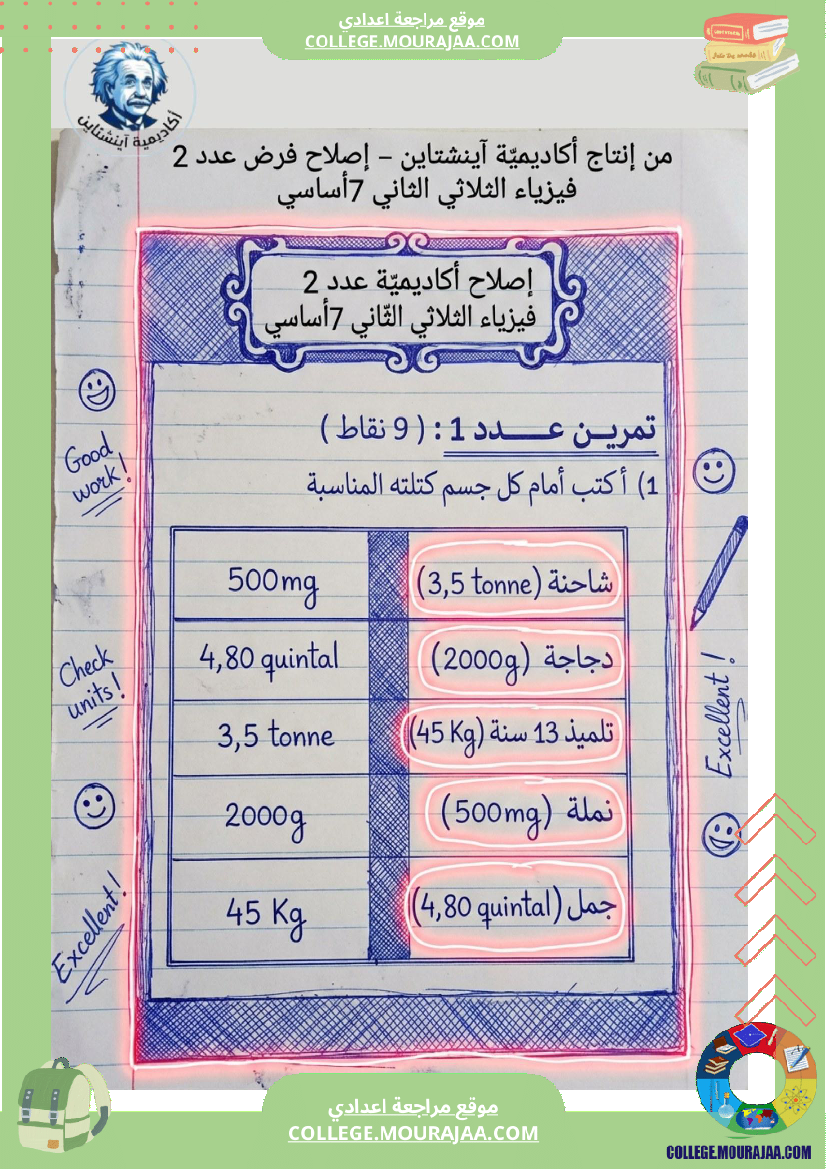 موقع مراجعة اعدادي
COLLEGE.MOURAJAA.COM
أكاديمية آينشتاين
من إنتاج أكاديميّة آينشتاين – إصلاح فرض عدد 2
فيزياء الثلاثي الثاني 7أساسي
إصلاح أكاديميّة عدد 2
فيزياء الثلاثي الثّاني 7أساسي
تمريـن عـــــدد 1 : ( 9 نقاط )
1) أكتب أمام كل جسم كتلته المناسبة
شاحنة (3,5 tonne) 500mg
دجاجة (2000g) 4,80 quintal
تلميذ 13 سنة (45 Kg) 3,5 tonne
نملة (500mg) 2000g
جمل (4,80 quintal) 45 Kg
Good
work!
Check
units!
Excellent!
Excellent!
موقع مراجعة اعدادي
COLLEGE.MOURAJAA.COM
COLLEGE.MOURAJAA.COM